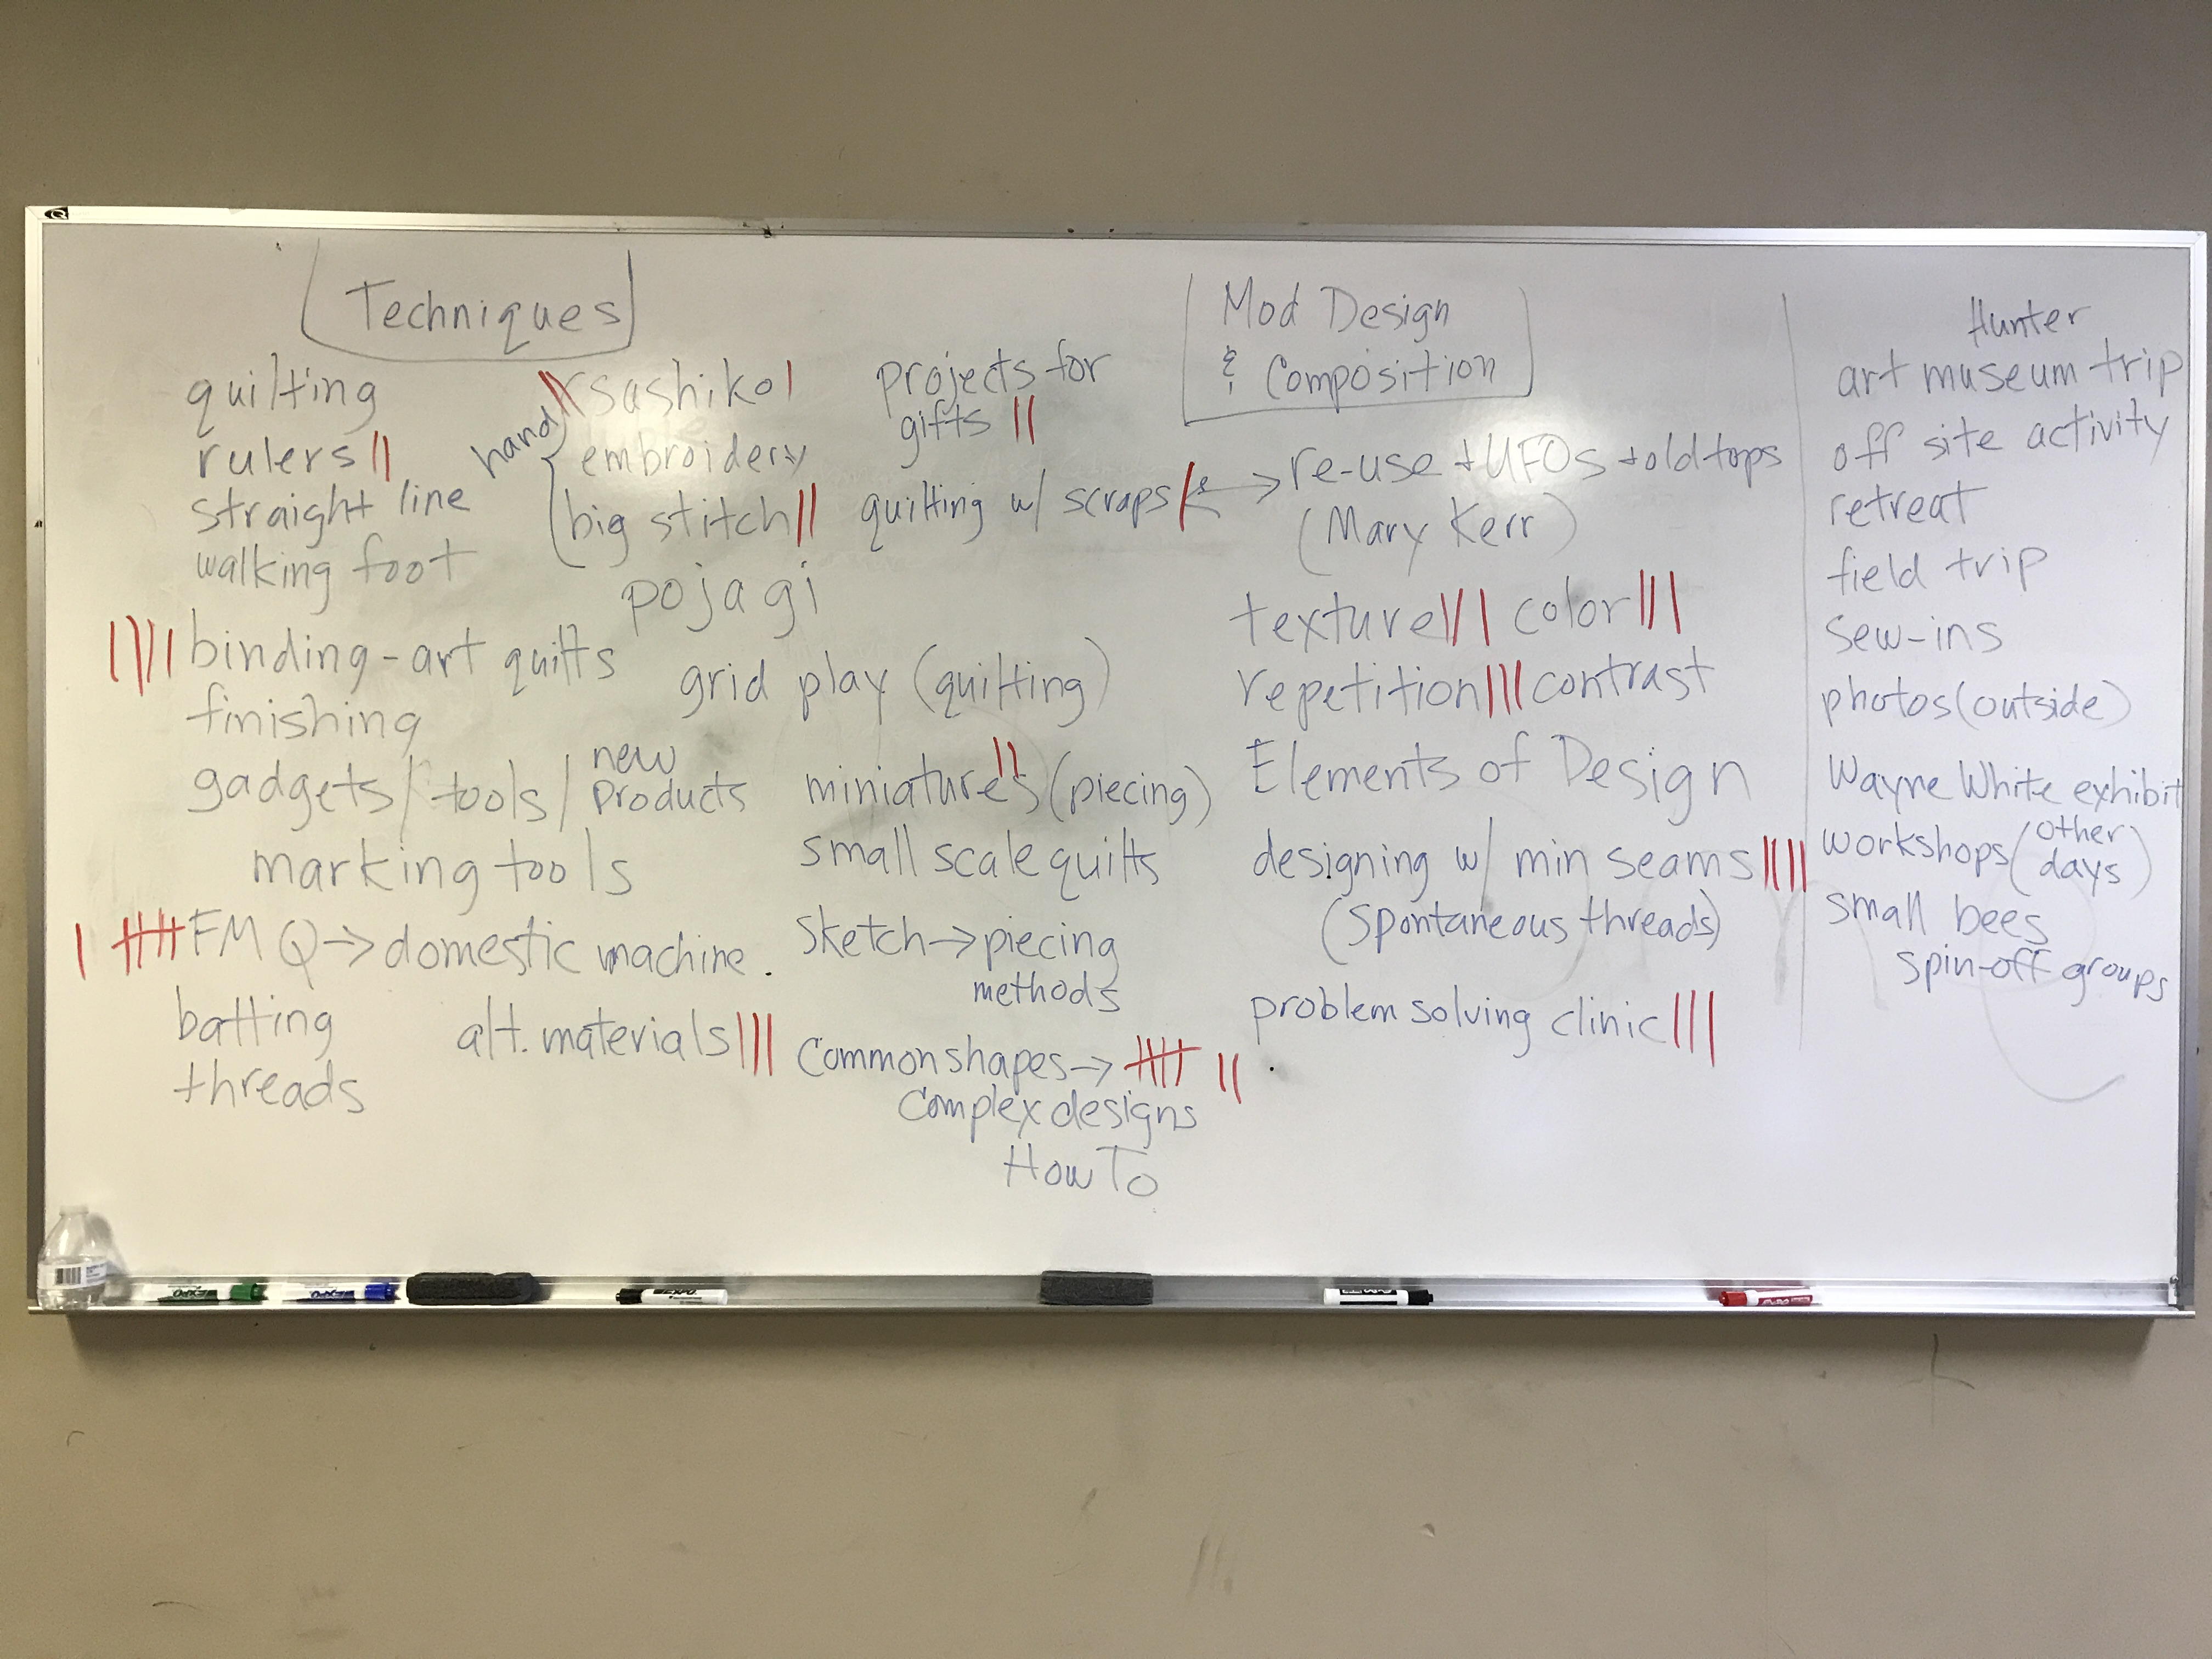 Techniques
quilting
rulers ||
straight line
walking foot
|||| binding-art quilts
finishing
gadgets/tools/new products
marking tools
| 卌 FMQ→domestic machine.
batting
threads
hand || sashiko |
embroidery
big stitch ||
pojagi
grid play (quilting)
alt. materials |||
projects for
gifts ||
quilting w/ scraps | ↔ re-use + UFOs + old tops
(Mary Kerr)
miniatures || (piecing)
small scale quilts
sketch→piecing
methods
Common shapes→ 卌 ||
Complex designs
How To
Mod Design
& Composition
texture ||| color |||
repetition ||| contrast
Elements of Design
designing w/ min seams ||||
(spontaneous threads)
problem solving clinic |||
Hunter
art museum trip
off site activity
retreat
field trip
sew-ins
photos (outside)
Wayne White exhibit
workshops (other days)
small bees
spin-off groups
EXPO
EXPO
EXPO